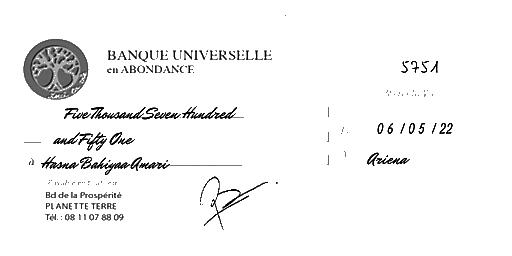 BANQUE UNIVERSELLE
en ABONDANCE
5751
Five Thousand Seven Hundred
and Fifty One
06/05/22
à Hasna Bahiyaa Amari
Ariena
Bd de la Prospérité
PLANETTE TERRE
Tél. : 08 11 07 88 09